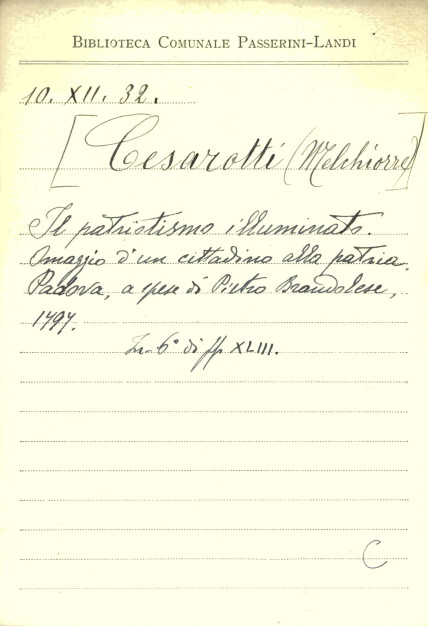 BIBLIOTECA COMUNALE PASSERINI-LANDI
10. XII. 32.
[Cesarotti (Melchiorre)]
Il patriotismo illuminato.
Omaggio d'un cittadino alla patria.
Padova, a spese di Pietro Brandolese,
1797.
In-6° di pp XLIII.
C